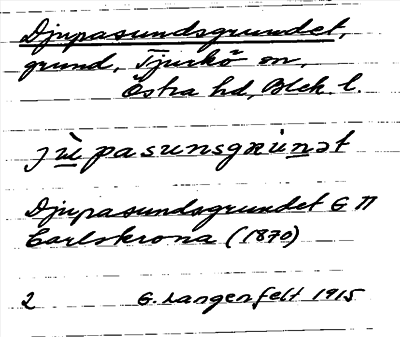 Djupasundsgrundet,
grund, Tjurkö sn,
Östra hd, Blek. l.
jùpasunsgrunət
Djupasundsgrundet G
Carlskrona (1870)
2 G. Langenfelt 1915